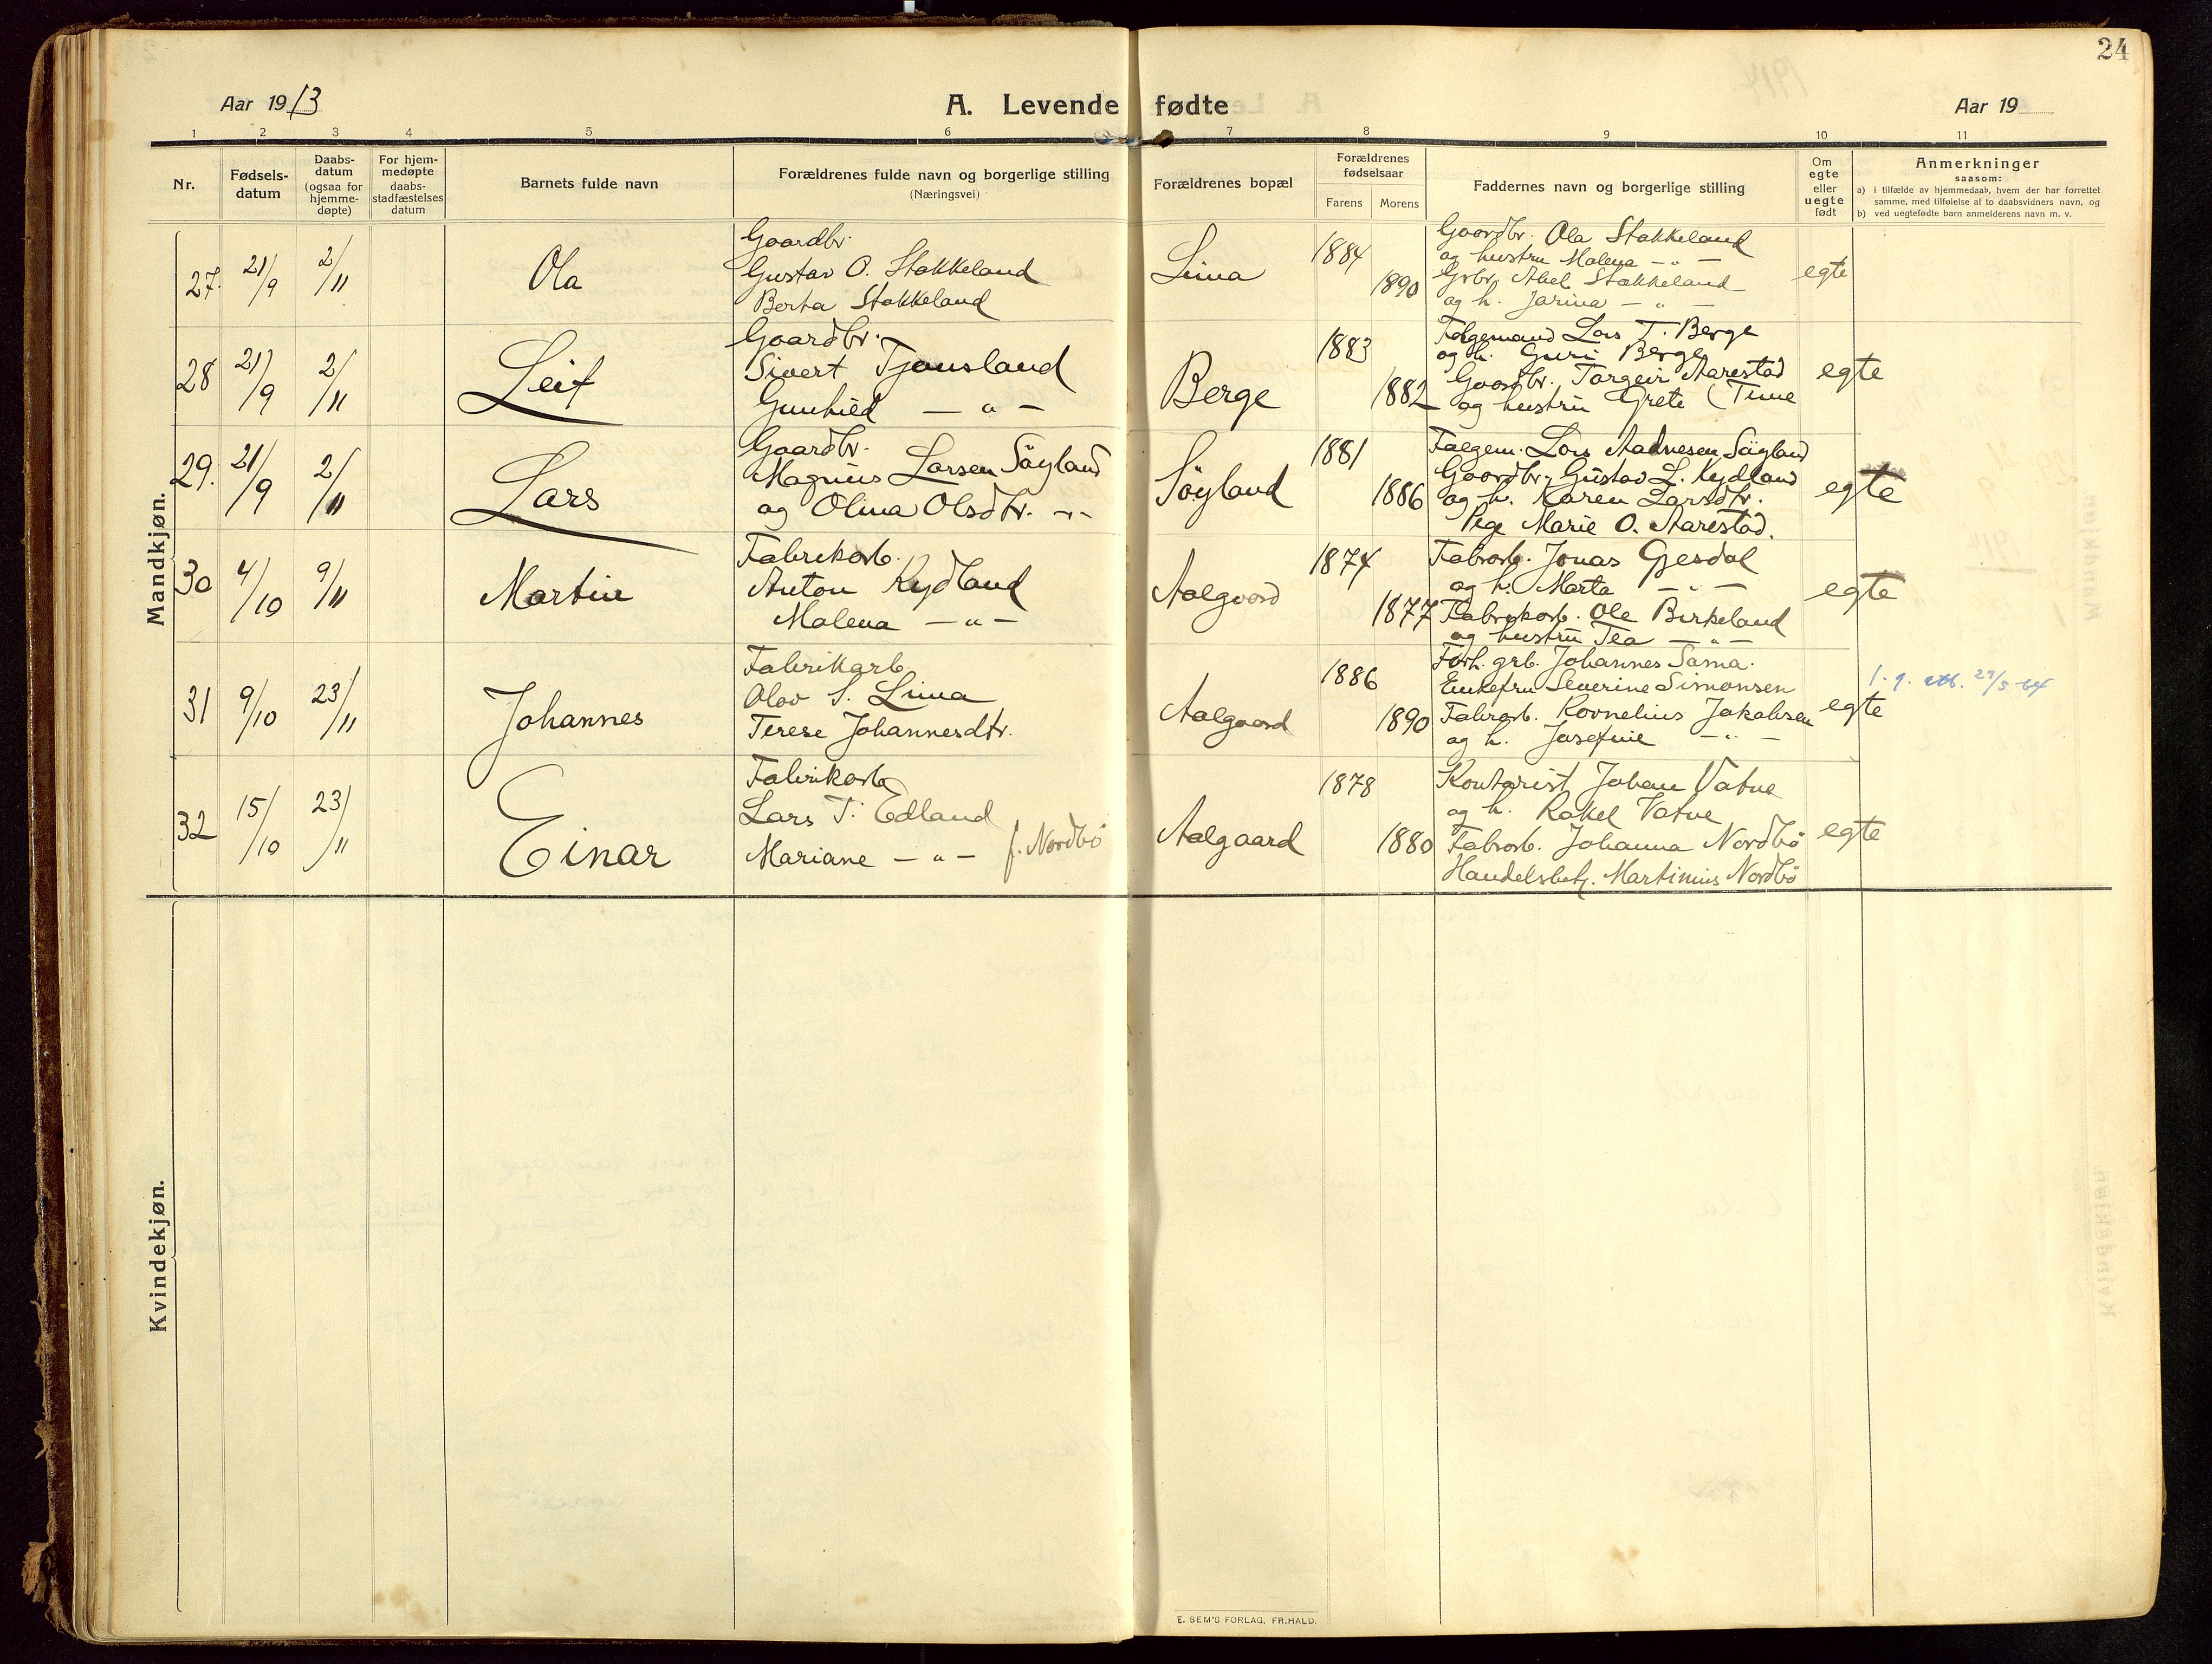 24
Aar 1913
A. Levende fødte
Aar 19
1 2 3 4 5 6 7 8 9 10 11
Nr.
Fødsels-
datum
Daabs-
datum
(ogsaa for
hjemme-
døpte)
For hjem-
medøpte
daabs-
stadfæstelses
datum
Barnets fulde navn
Forældrenes fulde navn og borgerlige stilling
(Næringsvei)
Forældrenes bopæl
Forældrenes
fødselsaar
Farens Morens
Faddernes navn og borgerlige stilling
Om
egte
eller
uegte
født
Anmerkninger
saasom:
a) i tilfælde av hjemmedaab, hvem der har forrettet
samme, med tilføielse af to daabsvidners navn, og
b) ved uegtefødte barn anmelderens navn m. v.
Mandkjøn.
27. 21/9 2/11 Ola
Gaardbr.
Gustav O. Stokkeland
Berta Stokkeland
Lima 1884 1890
Gaardbr. Ola Stokkeland
og hustru Malena — " —
Grbr. Abel Stokkeland
og h. Jarina — " —
egte
28 21/9 2/11 Leif
Gaardbr.
Sivert Tjonsland
Gunhild — " —
Berge 1883 1882
Følgemand Lars T. Berge
og h. Guri Berge
Gaardbr. Torgeir Aarestad
og hustru Grete (Time
egte
29. 21/9 2/11 Lars
Gaardbr.
Magnus Larsen Söyland
og Olina Olsdtr. — " —
Söyland 1881 1886
Følgem. Lars Aadnesen Söyland
Gaardbr. Gustav L. Kydland
og h. Karen Larsdtr.
Pige Marie O. Aarestad.
egte
30 4/10 9/11 Martin
Fabrikarb.
Anton Kydland
Malena — " —
Aalgaard 1874 1877
Fabrarb. Jonas Gjesdal
og h. Marta — " —
Fabrikarb. Ole Birkeland
og hustru Tea — " —
egte
31 9/10 23/11 Johannes
Fabrikarb.
Olav S. Lima
Terese Johannesdtr.
Aalgaard 1886 1890
Forh. grb. Johannes Soma.
Enkefru Severine Simonsen
Fabrarb. Kornelius Jakobsen
og h. Josefine — " —
egte
29/5-64
32 15/10 23/11 Einar
Fabrikarb
Lars T. Edland
Mariane — " — f. Nordbö
Aalgaard 1878 1880
Kontorist Johan Vatne
og h. Rakel Vatne
Fabrarb. Johanna Nordbö
Handelsbetj. Martinius Nordbö
egte
Kvindekjøn.
E. SEM'S FORLAG, FR.HALD.